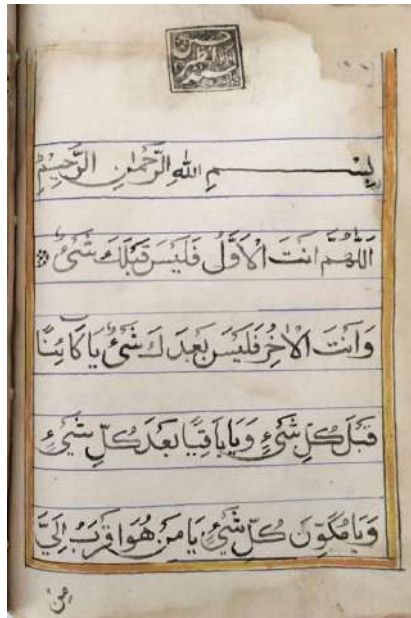 بِسْمِ اللهِ الرَّحْمٰنِ الرَّحِيْمِ
اَللّٰهُمَّ اَنْتَ الْاَوَّلُ فَلَيْسَ قَبْلَكَ شَىْءٌ
وَاَنْتَ الْاٰخِرُ فَلَيْسَ بَعْدَكَ شَىْءٌ يَا كَائِنًا
قَبْلَ كُلِّ شَىْءٍ وَيَا بَاقِيًا بَعْدَ كُلِّ شَىْءٍ
وَيَا مُكَوِّنَ كُلِّ شَىْءٍ يَا مَنْ هُوَ اَقْرَبُ اِلَيَّ
مِنْ